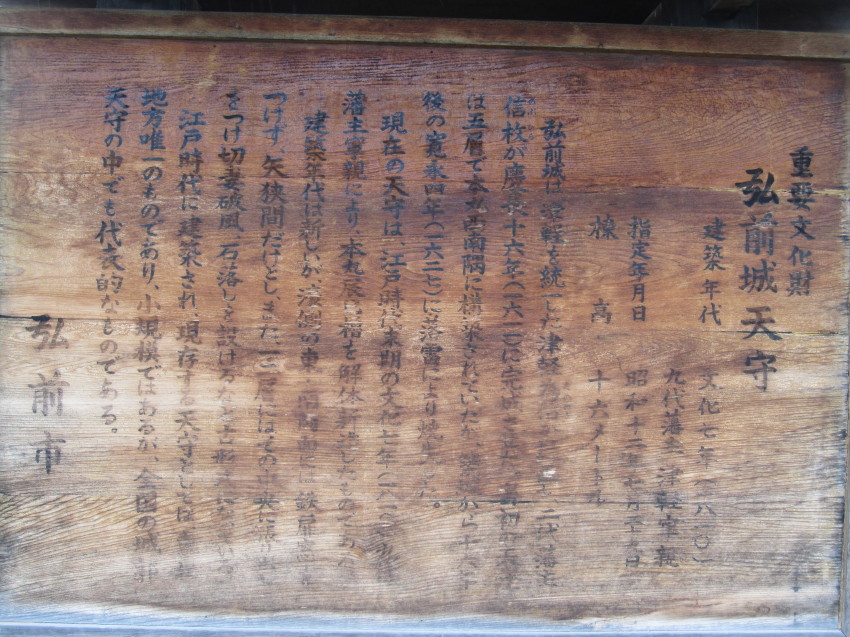 重要文化財
弘前城天守
建築年代 文化七年(一八一〇)
九代藩主 津軽寧親
指定年月日 昭和十二年
棟高 十六メートル
弘前城は津軽を統一した津軽 二代藩主
信枚が慶長十六年(一六一一)に完成させた
は五層で本丸西南隅に構築されていたが、築城から十六年
後の寛永四年(一六二七)に落雷により焼失した。
現在の天守は、江戸時代末期の文化七年(一八一〇)
藩主寧親により、本丸辰巳櫓を解体新造したものである
建築年代は新しいが、濠側の東・南両面には鉄扉窓を
つけず、矢狭間だけとし、また一二層にはその中央に張り出し
をつけ切妻破風、石落しを設けるなど古形式
江戸時代に建築され、現存する天守としては東北
地方唯一のものであり、小規模ではあるが、全国の城郭
天守の中でも代表的なものである。
弘前市